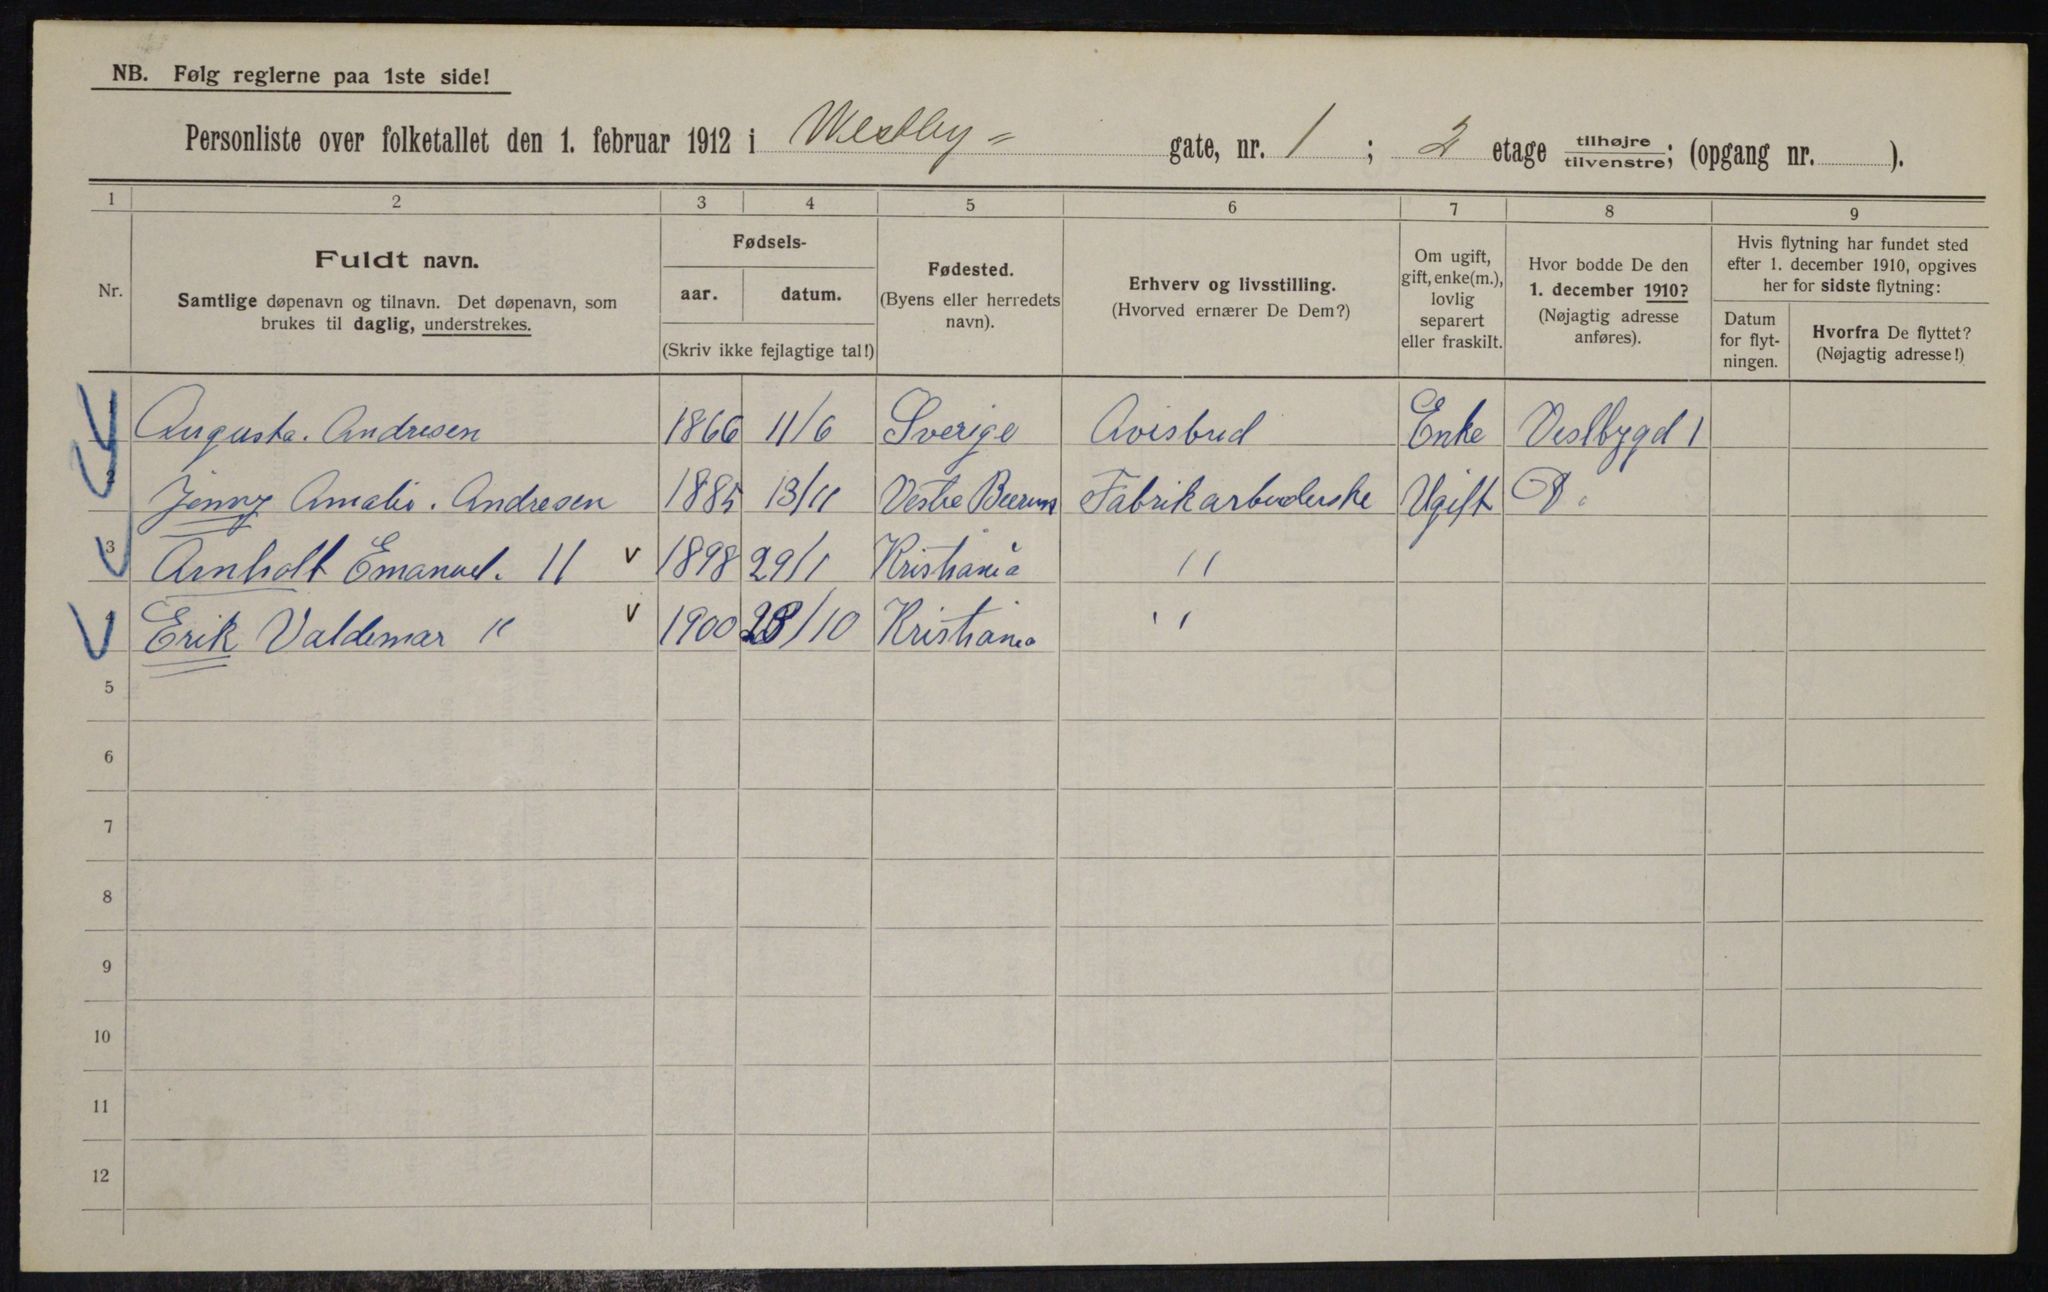 NB. Følg reglerne paa 1ste side!
Personliste over folketallet den 1. februar 1912 i Westby = gate, nr. 1 ; 2 etage tilhøjre / tilvenstre; (opgang nr. ).
1 2 3 4 5 6 7 8 9
Nr.
Fuldt navn.
Samtlige døpenavn og tilnavn. Det døpenavn, som
brukes til daglig, understrekes.
Fødsels-
aar. datum.
(Skriv ikke fejlagtige tal!)
Fødested.
(Byens eller herredets
navn).
Erhverv og livsstilling.
(Hvorved ernærer De Dem?)
Om ugift,
gift, enke(m.),
lovlig
separert
eller fraskilt.
Hvor bodde De den
1. december 1910?
(Nøjagtig adresse
anføres).
Hvis flytning har fundet sted
efter 1. december 1910, opgives
her for sidste flytning:
Datum
for flyt-
ningen.
Hvorfra De flyttet?
(Nøjagtig adresse!)
1 Augusta. Andresen 1866 11/6 Sverige Avisbud Enke Vestbygd 1
2 Jenny Amalie. Andresen 1885 13/11 Vestre Bærum Fabrikarbeiderske Ugift D.
3 Arnholt Emanuel. 11 v 1898 29/1 Kristiania 11
4 Erik Valdemar " v 1900 28/10 Kristiania "
5
6
7
8
9
10
11
12